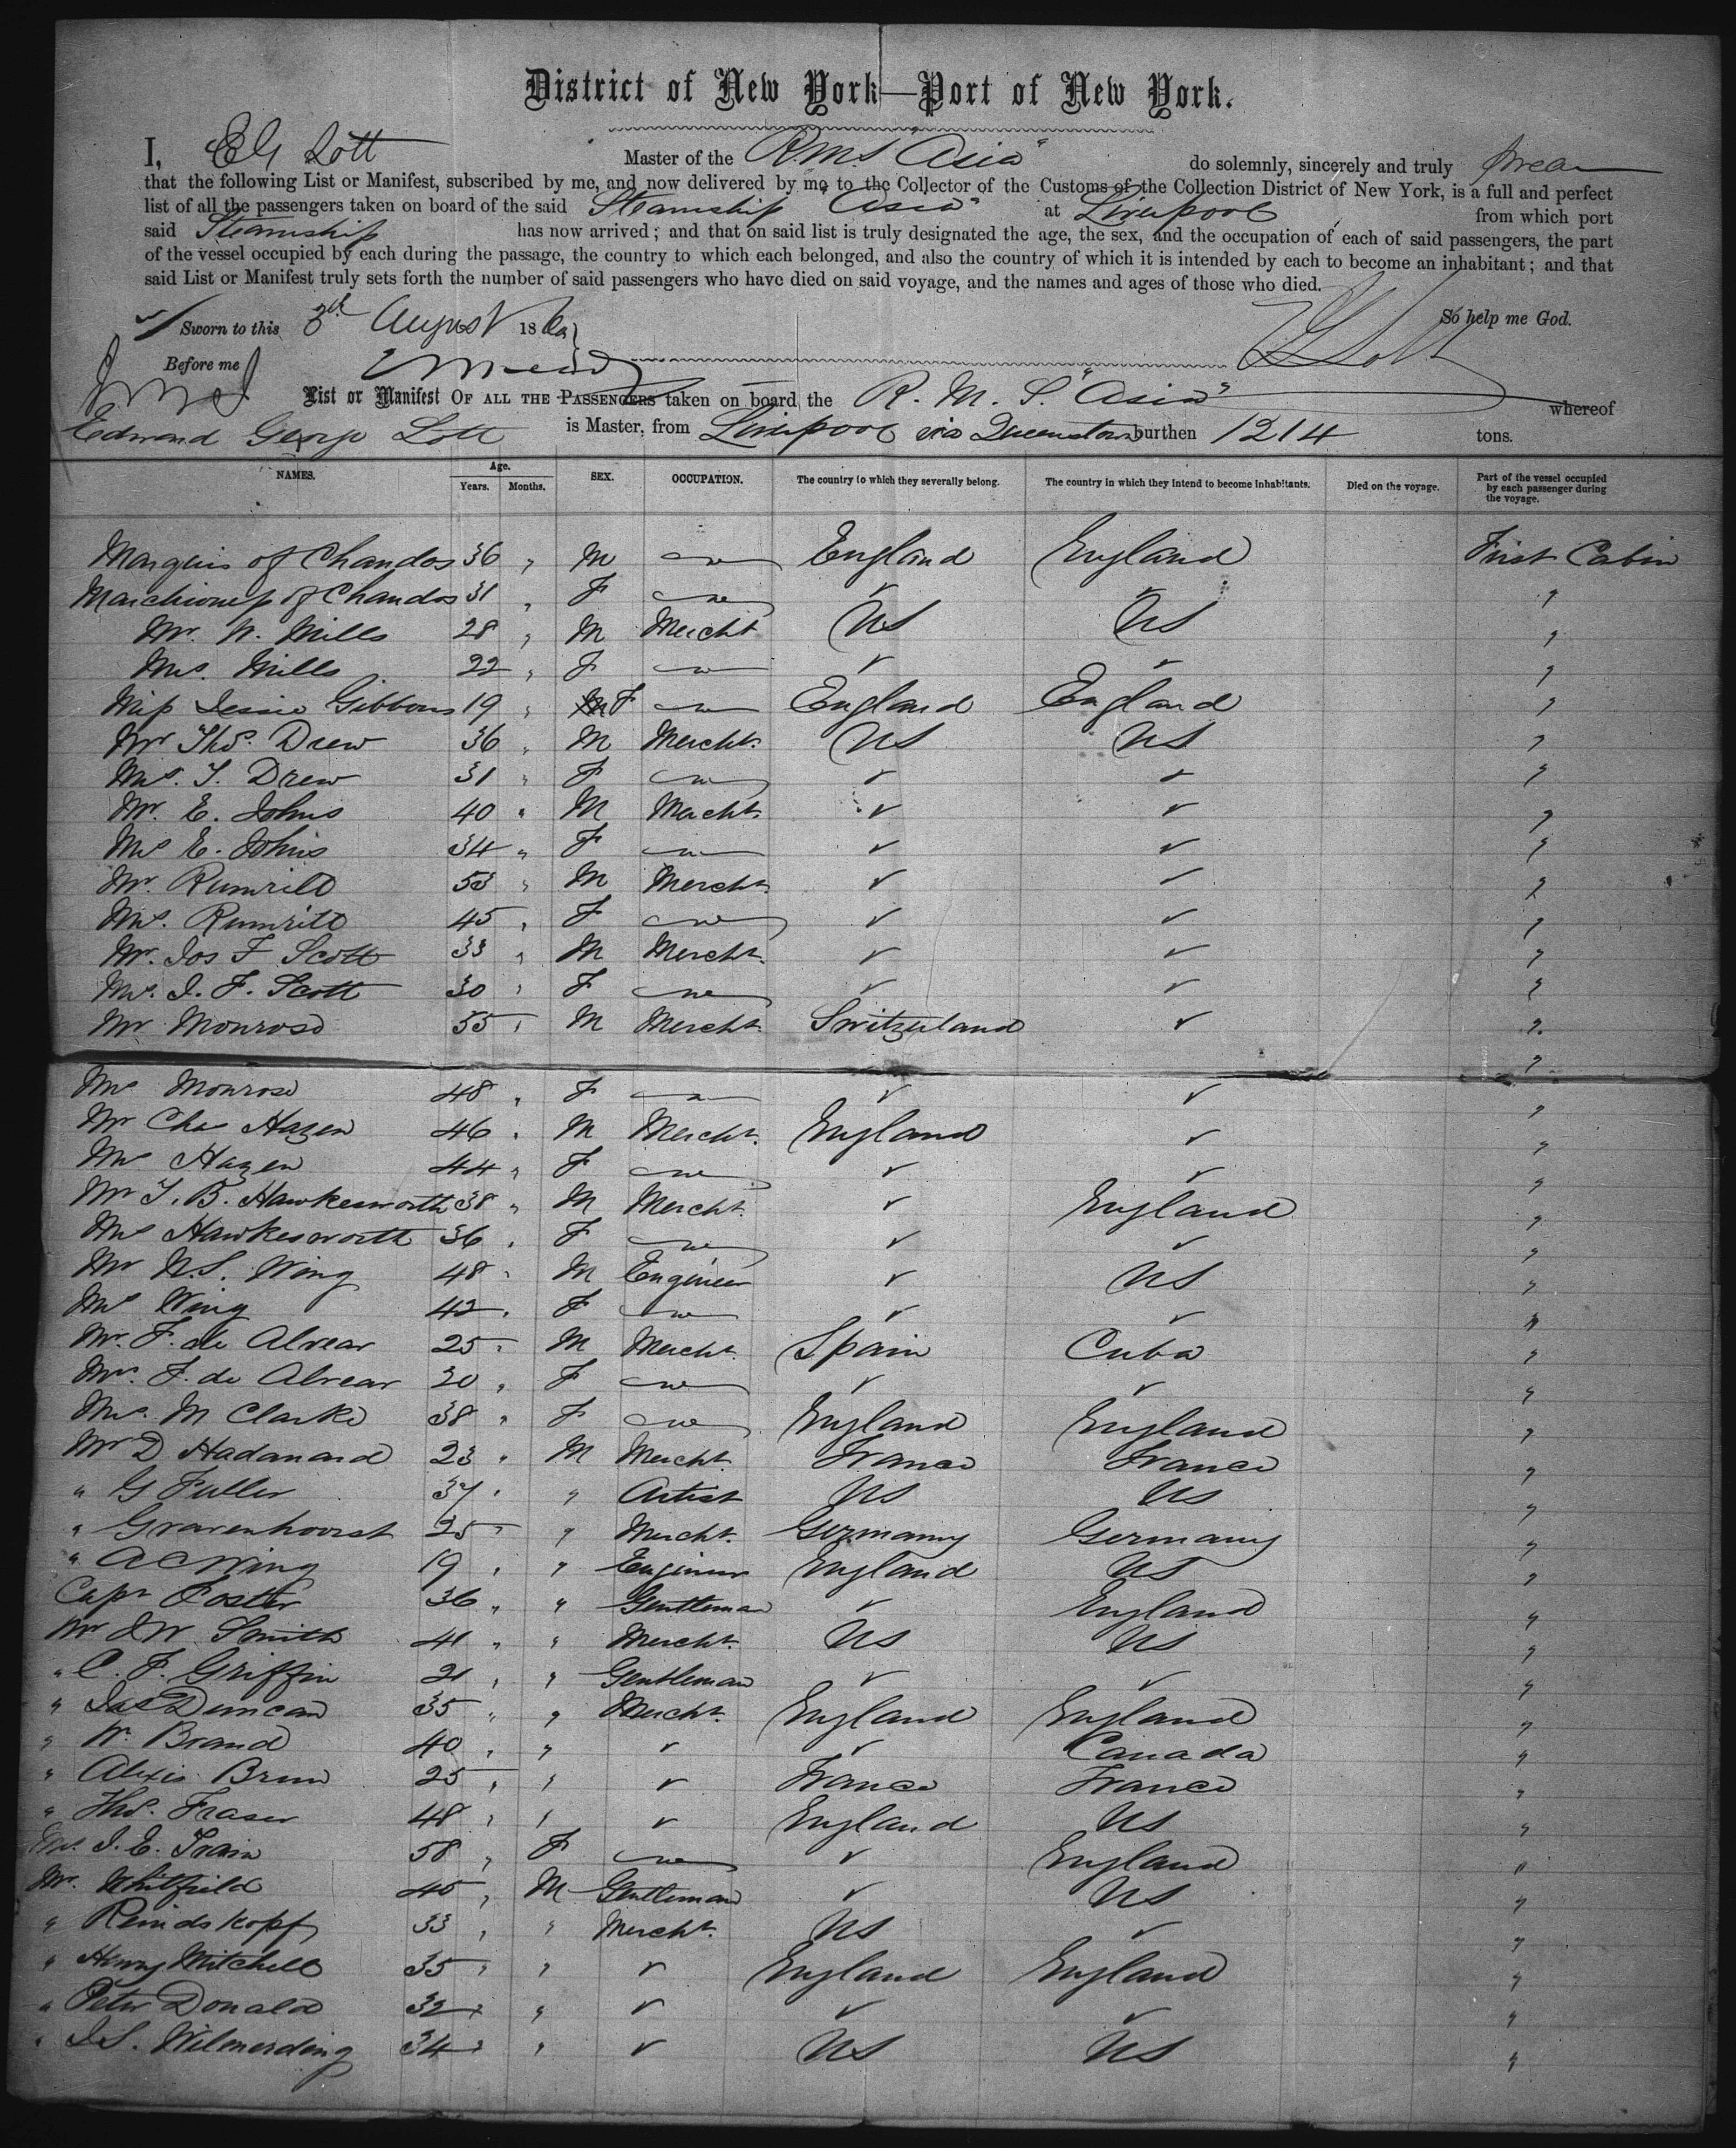 District of New York—Port of New York.
I, E G Lott Master of the R.M.S "Asia" do solemnly, sincerely and truly swear
that the following List or Manifest, subscribed by me, and now delivered by me to the Collector of the Customs of the Collection District of New York, is a full and perfect
list of all the passengers taken on board of the said Steamship "Asia" at Liverpool from which port
said Steamship has now arrived; and that on said list is truly designated the age, the sex, and the occupation of each of said passengers, the part
of the vessel occupied by each during the passage, the country to which each belonged, and also the country of which it is intended by each to become an inhabitant; and that
said List or Manifest truly sets forth the number of said passengers who have died on said voyage, and the names and ages of those who died.
Sworn to this August 186 So help me God.
Before me E G Lott
List or Manifest OF ALL THE PASSENGERS taken on board the R. M. S. "Asia" whereof
Edward George Lott is Master, from Liverpool via Queenstown burthen 1214 tons.
NAMES. Age. Years. Months. SEX. OCCUPATION. The country to which they severally belong. The country in which they intend to become inhabitants. Died on the voyage. Part of the vessel occupied by each passenger during the voyage.
Marquis of Chandos 36 " M — England England First Cabin
Marchioness of Chandos 31 " F — " " "
Mr. W. Mills 28 " M Mercht US US "
Mrs. Mills 22 " F — ✓ ✓ "
Miss Jessie Gibbons 19 " F — England England "
Mr Thos. Drew 36 " M Mercht. US US "
Mrs. T. Drew 31 " F — ✓ ✓ "
Mr. E. Johns 40 " M Mercht. ✓ ✓ "
Mrs E. Johns 34 " F — ✓ ✓ "
Mr. Rumrill 53 " M Mercht. ✓ ✓ "
Mrs. Rumrill 45 " F — ✓ ✓ "
Mr. Jos F Scott 33 " M Mercht. ✓ ✓ "
Mrs. J. F. Scott 30 " F — ✓ ✓ "
Mr Monrose 55 " M Mercht. Switzerland ✓ "
Mrs Monrose 48 " F — ✓ ✓ "
Mr Chas Hazen 46 " M Mercht. England ✓ "
Mrs Hazen 44 " F — ✓ ✓ "
Mr T. B. Hawkesworth 38 " M Mercht. ✓ England "
Mrs Hawkesworth 36 " F — ✓ ✓ "
Mr N.S. Wing 48 " M Engineer ✓ US "
Mrs Wing 42 " F — ✓ ✓ "
Mr. F. de Alvear 25 " M Mercht. Spain Cuba "
Mrs. F. de Alvear 20 " F — ✓ ✓ "
Mrs. M Clarke 38 " F — England England "
Mr D Hadamard 23 " M Mercht. France France "
" G Fuller 37 " " Artist US US "
" Gravenhorst 25 " " Mercht. Germany Germany "
" A C Wing 19 " " Engineer England US "
Capt Foster 36 " " Gentleman ✓ England "
Mr J W Smith 41 " " Mercht. US US "
" C. F. Griffin 21 " " Gentleman ✓ ✓ "
" Jas Duncan 35 " " Mercht. England England "
" W. Brand 40 " " ✓ ✓ Canada "
" Alexis Brun 25 " " ✓ France France "
" Thos. Fraser 48 " " ✓ England US "
Mrs. J. E. Train 58 " F — ✓ England "
Mr. Whitfield 45 " M Gentleman ✓ US "
" Reindskopf 33 " " Mercht. US ✓ "
" Henry Mitchell 35 " " ✓ England England "
" Peter Donald 32 " " ✓ ✓ ✓ "
" J.S. Wilmerding 34 " " ✓ US US "